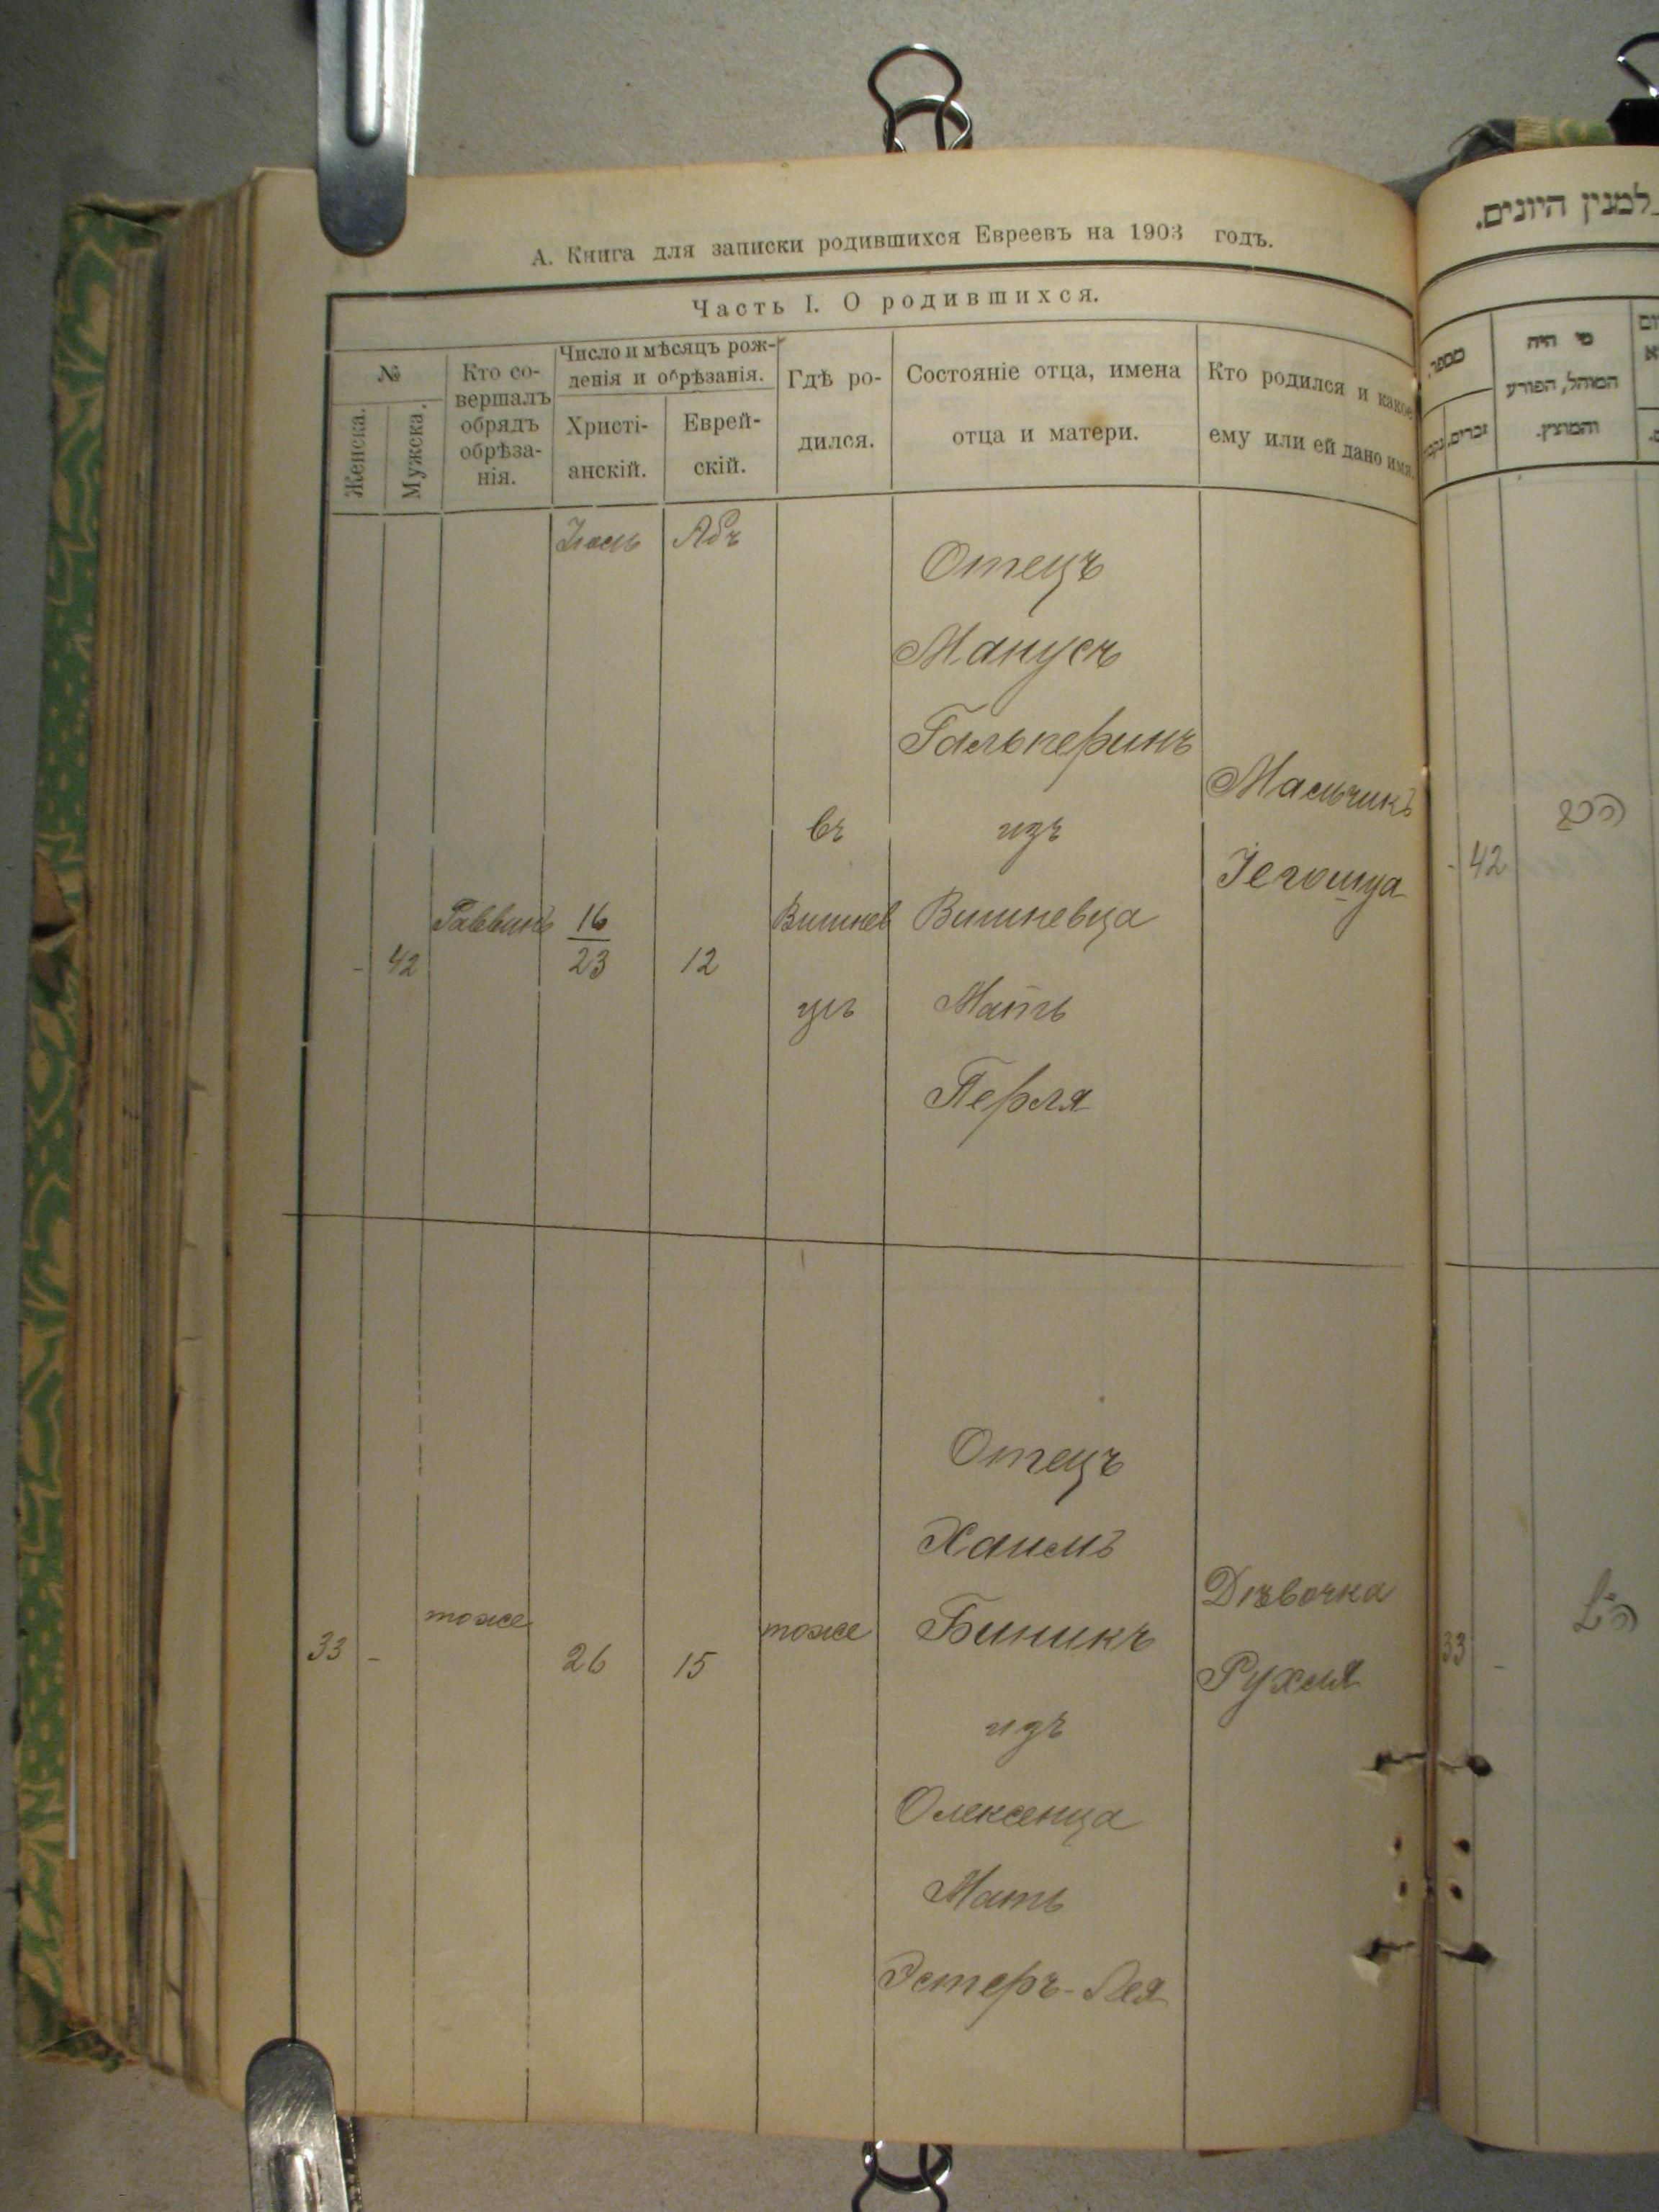 А. Книга для записки родившихся Евреевъ на 1903 годъ.
Часть I. О родившихся.
№
Женска.
Мужска.
Кто со-
вершалъ
обрядъ
обрѣза-
нія.
Число и мѣсяцъ рож-
денія и обрѣзанія.
Христі-
анскій.
Еврей-
скій.
Гдѣ ро-
дился.
Состояніе отца, имена
отца и матери.
Кто родился и какое
ему или ей дано имя.
Іюль
Абъ
- 42
Раввинъ
16
23
12
въ
Вишнев
цѣ
Отецъ
Манусъ
Гальперинъ
изъ
Вишневца
Мать
Перля
Мальчикъ
Іегошуа
33 -
тоже
26
15
тоже
Отецъ
Хаимъ
Биникъ
изъ
Олексенца
Мать
Эстеръ-Лея
Дѣвочка
Рухля
למנין היונים.
מספר
זכרים.
מי היה
המוהל, הפורע
והמוצץ.
- 42
33 -